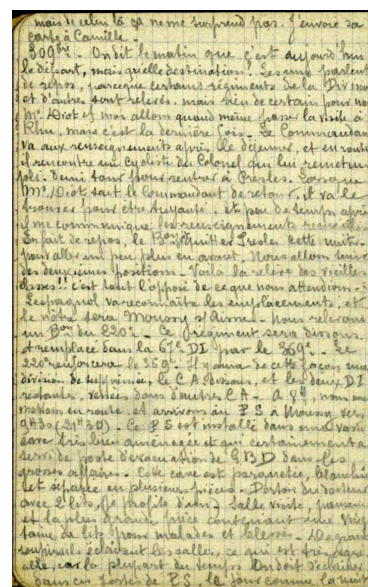 mais de celui là ça ne me surprend pas. J'envoie sa
carte à Camille.
30 9bre. On dit le matin que c'est aujourd'hui
le départ, mais quelle destination! Les uns parlent
de repos, parce que certains régiments de la Division
et d'autres sont relevés, mais rien de certain pour nous
Mr Diot et moi allons quand même passer la visite à
mais c'est la dernière fois. Le Commandant
va aux renseignements après le déjeuner, et en route
il rencontre un cycliste du Colonel qui lui remet un
pli. Demi tour pour rentrer à Presles. Lorsque
Mr Diot sait le Commandant de retour, il va le
trouver pour être tuyauté, et peu de temps après
il me communique les renseignements recueillis
En fait de repos, le Bon quitter Presles cette nuit
pour aller un peu plus en avant. Nous allons tenir
des deuxièmes positions. Voilà la relève des vieilles
classes!! c'est tout l'opposé de ce que nous attendions.
Lespagnol va reconnaître les emplacements, et
le nôtre sera Moussy s/Aisne. Nous relevons
un Bon du 220e. Ce régiment sera dissous
et remplacé dans la 67e DI par le 369e. Le
220e renforcera le 359e. Il y aura de cette façon une
division de supprimée, le C.A. dissous, et les deux DI
restantes, versées dans d'autres C.A. A 8h, nous nous
mettons en route et arrivons au P S à Moussy vers
9h30 (21h30). Ce P S est installé dans une vaste
cave très bien aménagée et qui certainement a
servi de poste d'évacuation de GBD dans les
grosses affaires. Cette cave est parquetée, blanchie
et séparée en plusieurs pièces. du docteur
avec 2 lits, (je profite d'un) Salle visite, pansements
et la plus grande pièce contenant une ving
taine de lits pour malades et blessés. 10 grands
soupiraux éclairent les salles, ce qui est très agré
able, car la plupart du temps on doit s'éclairer
dans ces sortes de P.S. le jour comme la nuit